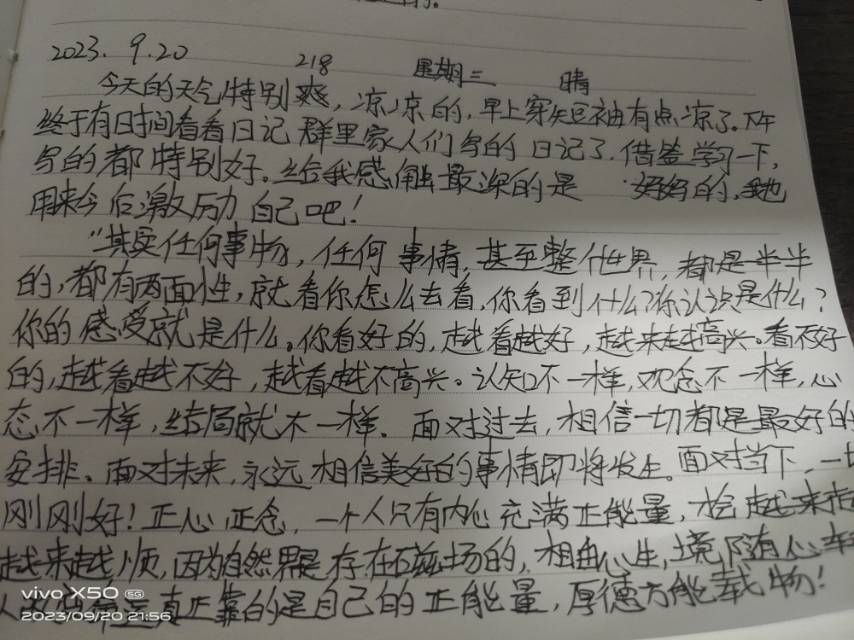 2023.9.20 218 星期三 晴
今天的天气特别爽，凉凉的，早上穿短袖有点凉了。下午
终于有时间看看日记群里家人们写的日记了，借鉴学习一下，
写的都特别好。给我感触最深的是 妈妈的，我也
用来今后激励自己吧！
“其实任何事物，任何事情，甚至整个世界，都是一半一半
的，都有两面性，就看你怎么去看，你看到什么？你认识是什么？
你的感受就是什么。你看好的，越看越好，越来越高兴。看不好
的，越看越不好，越看越不高兴。认知不一样，观念不一样，心
态不一样，结局就不一样。面对过去，相信一切都是最好的
安排。面对未来，永远相信美好的事情即将发生。面对当下，一切
刚刚好！正心正念，一个人只有内心充满正能量，才会越来越
越来越顺，因为自然界是存在磁场的，相由心生，境随心转
人 真正靠的是自己的正能量，厚德方能载物！
vivo X50 5G
2023/09/20 21:56